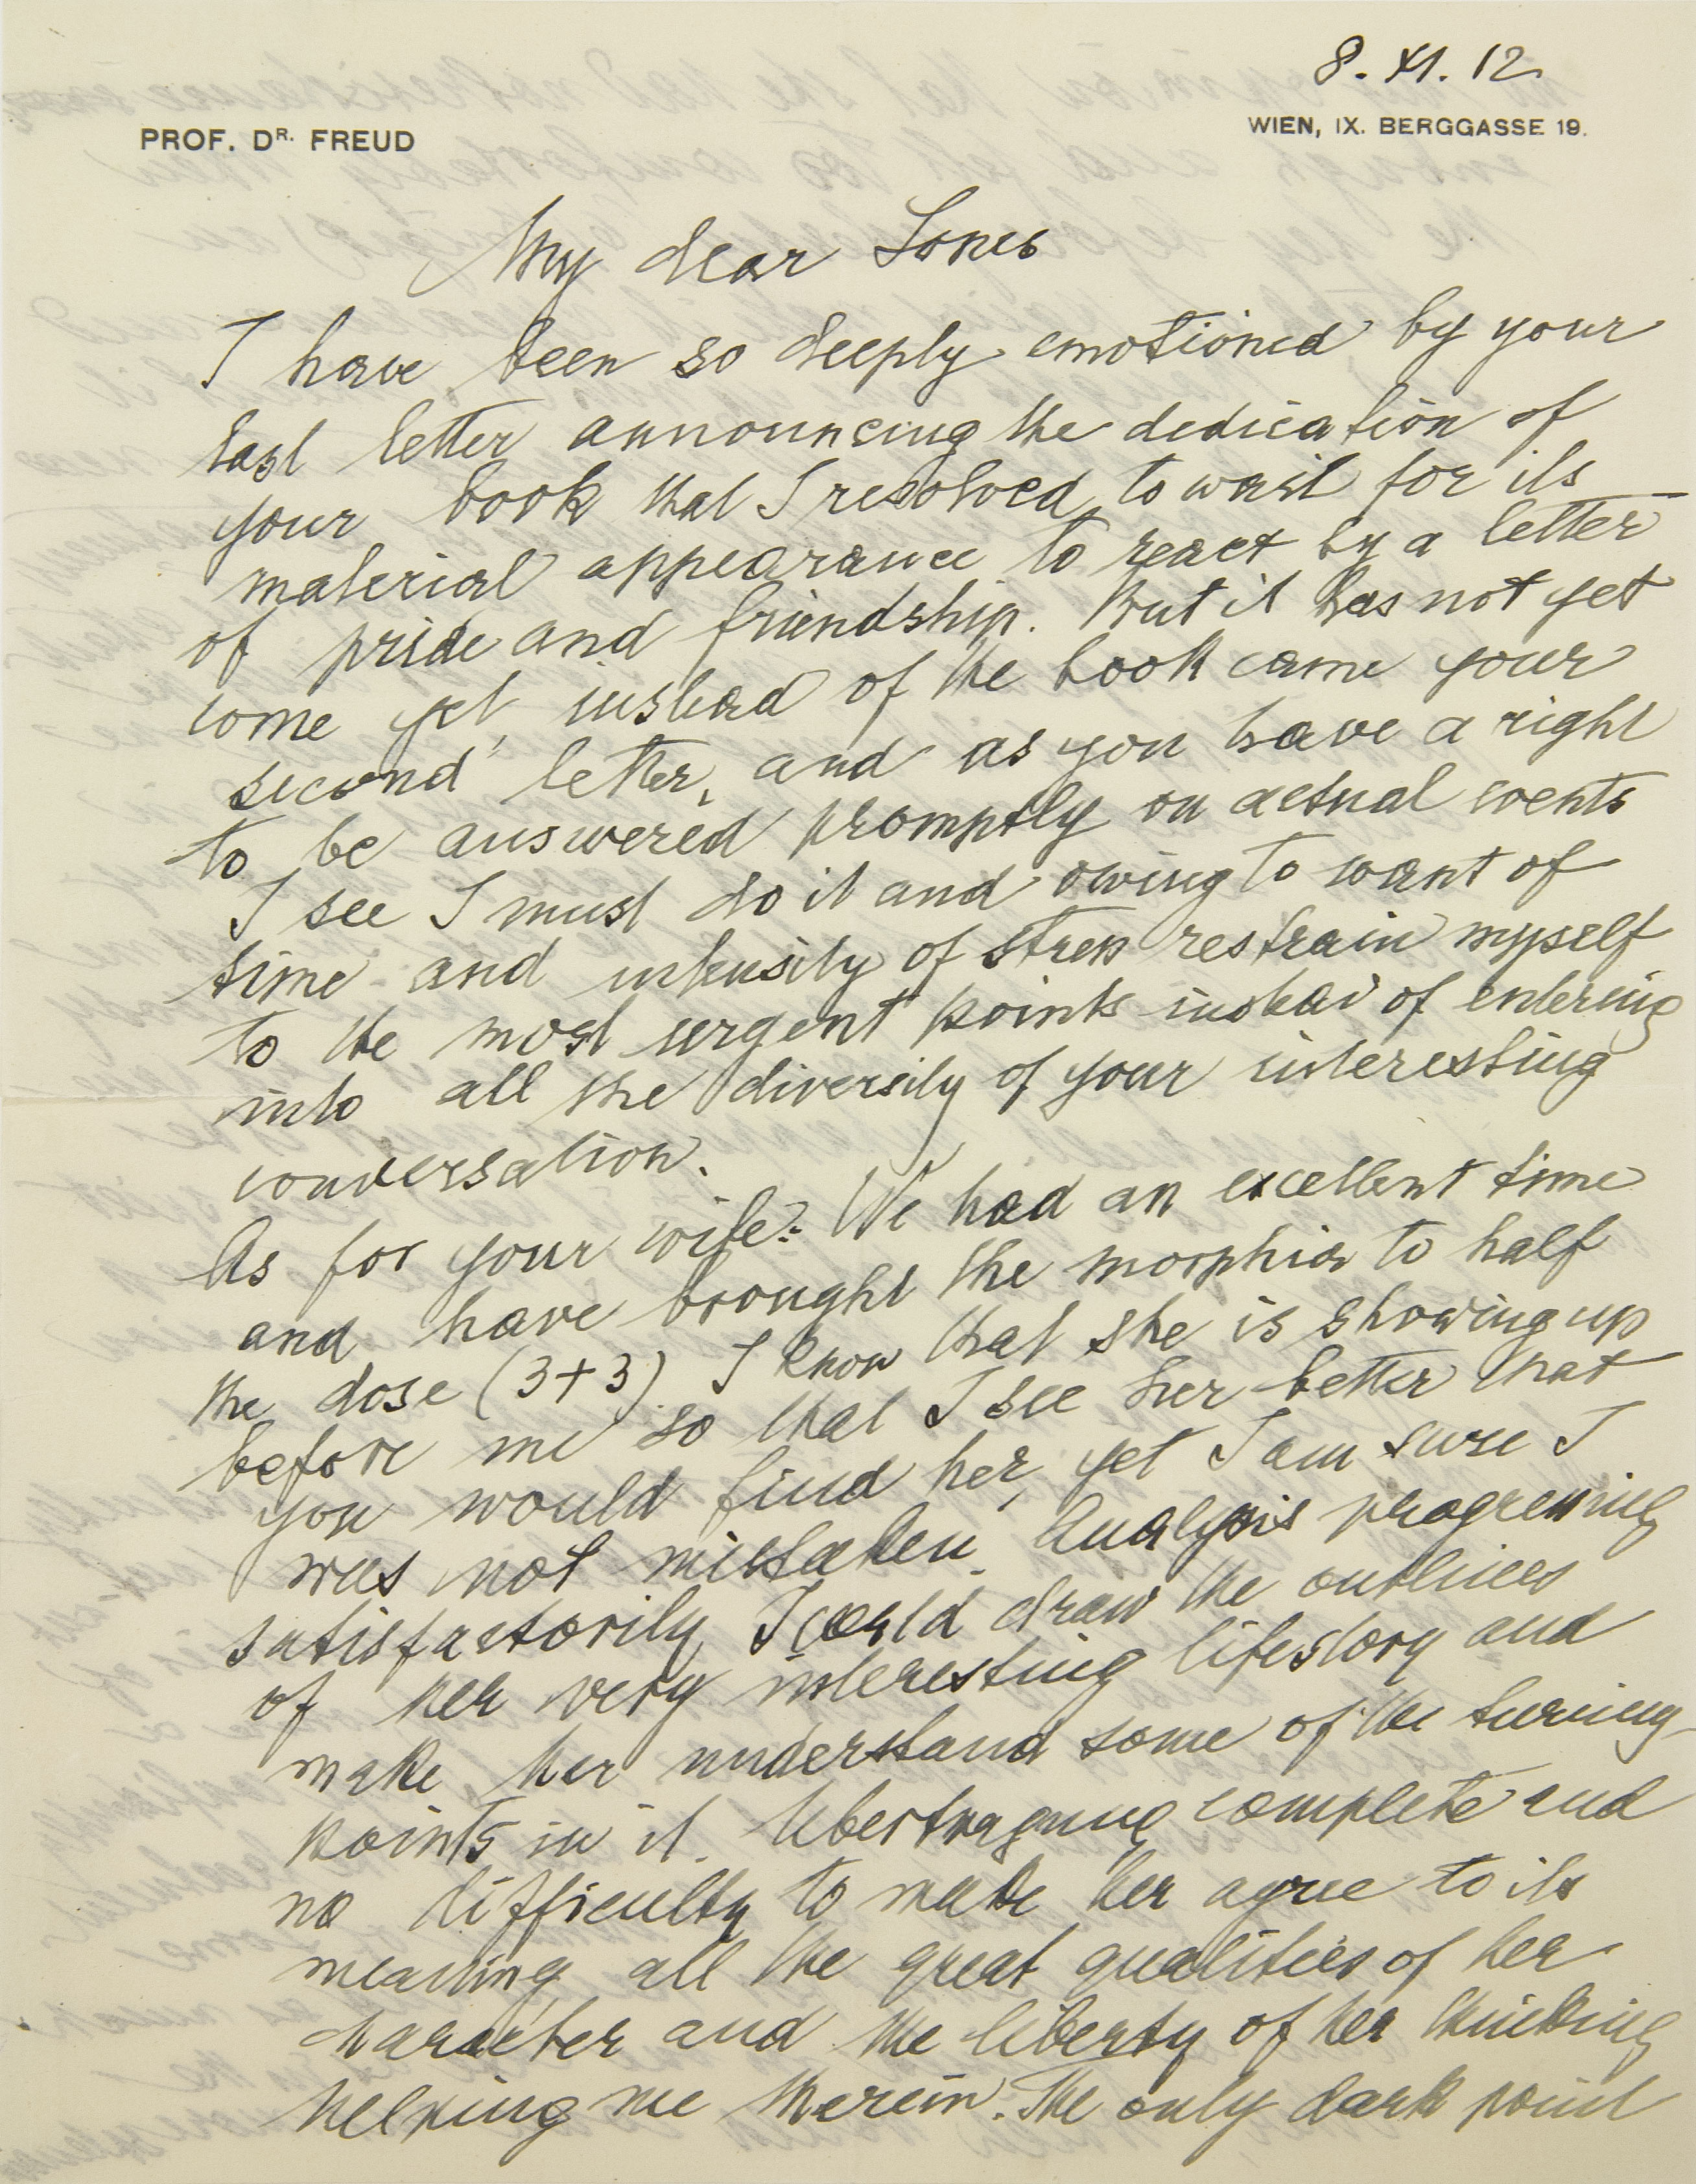 8. XI. 12
PROF. DR. FREUD
WIEN, IX. BERGGASSE 19.
My dear Jones
I have been so deeply emotioned by your
last letter announcing the dedication of
your book that I resolved to wait for its
material appearance to react by a letter
of pride and friendship. But it has not yet
come yet, instead of the book came your
second letter, and as you have a right
to be answered promptly on actual events
I see I must do it and owing to want of
time and intensity of stress restrain myself
to the most urgent points instead of entering
into all the diversity of your interesting
conversation.
As for your wife: We had an excellent time
and have brought the morphia to half
the dose (3+3). I know that she is showing up
before me so that I see her better that
you would find her, yet I am sure I
was not mistaken. Analysis progressing
satisfactorily, I could draw the outlines
of her very interesting lifestory and
make her understand some of the turning-
points in it. Übertragung complete and
no difficulty to make her agree to its
meaning, all the great qualities of her
character and the liberty of her thinking
helping me therein. The only dark point